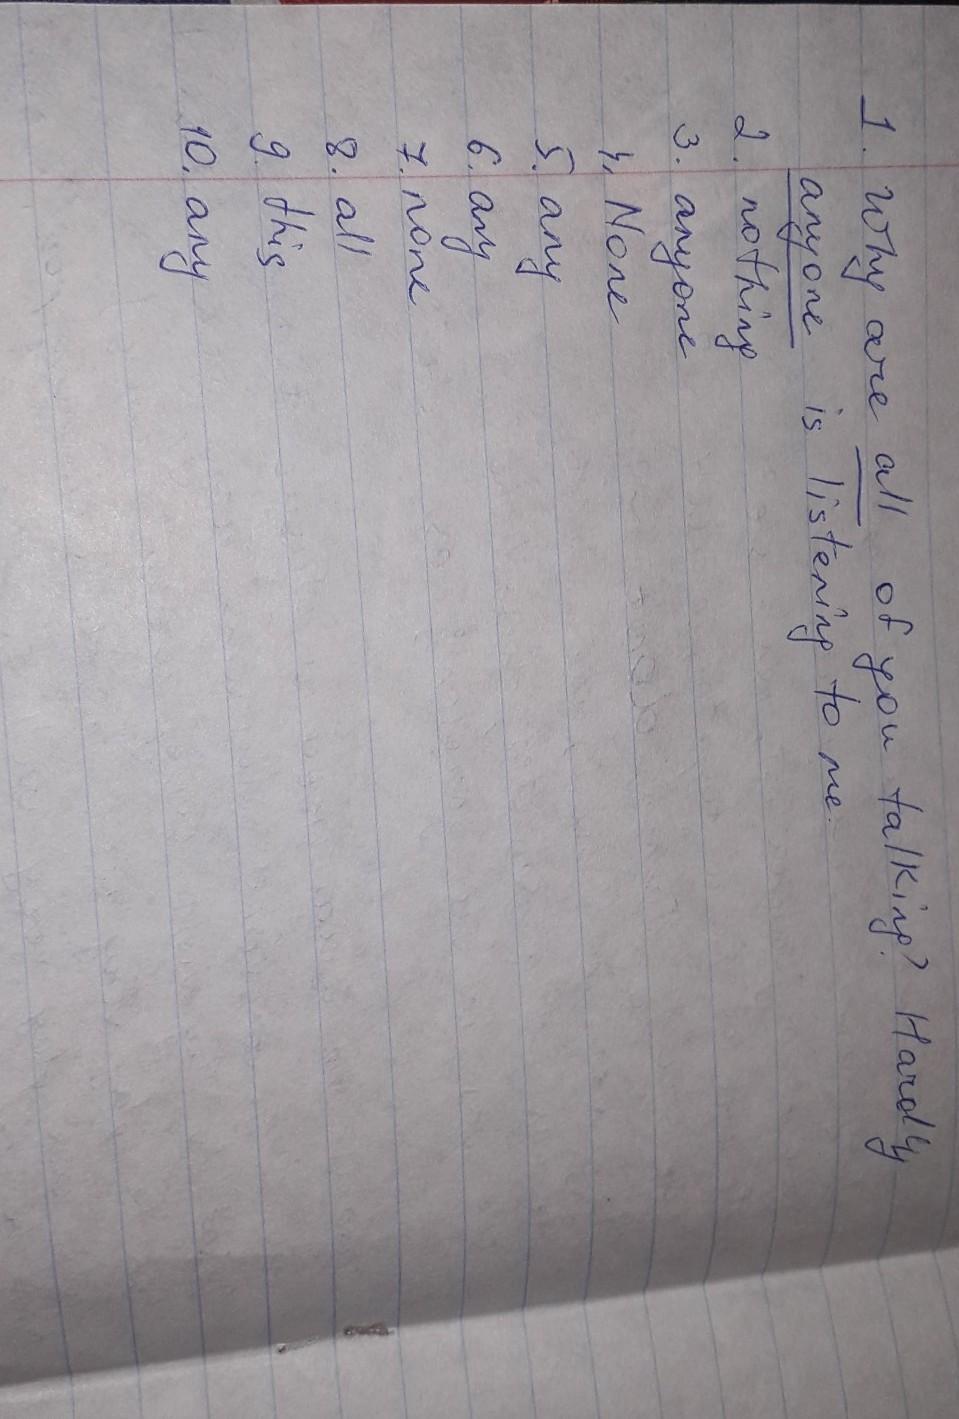 1. Why are all of you talking? Hardly
anyone is listening to me.
2. nothing
3. anyone
4. None
5. any
6. any
7. none
8. all
9. this
10. any